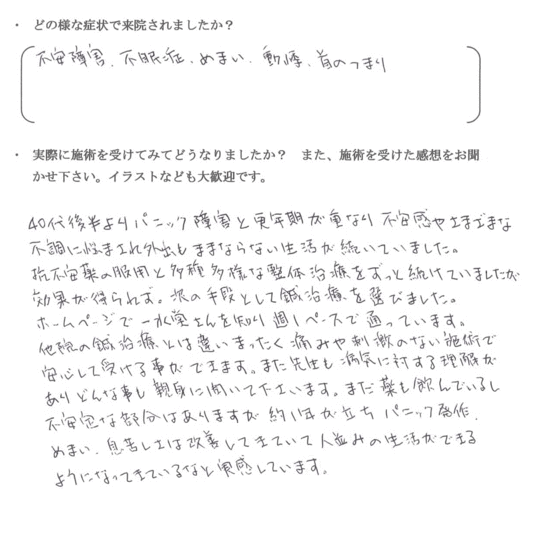 ・ どの様な症状で来院されましたか？
不安障害、不眠症、めまい、動悸、首のつまり
・ 実際に施術を受けてみてどうなりましたか？ また、施術を受けた感想をお聞
かせ下さい。イラストなども大歓迎です。
40代後半よりパニック障害と更年期が重なり不安感やさまざまな
不調に悩まされ外出もままならない生活が続いていました。
抗不安薬の服用と多種多様な整体治療をずっと続けていましたが
効果が得られず。次の手段として鍼治療を選びました。
ホームページで一水堂さんを知り週1ペースで通っています。
他院の鍼治療とは違いまったく痛みや刺激のない施術で
安心して受ける事ができます。また先生も病気に対する理解が
ありどんな事も親身に聞いて下さいます。まだ薬も飲んでいるし
不安定な部分はありますが約1年が立ちパニック発作、
めまい、息苦しさは改善してきていて人並みの生活ができる
ようになってきているなと実感しています。